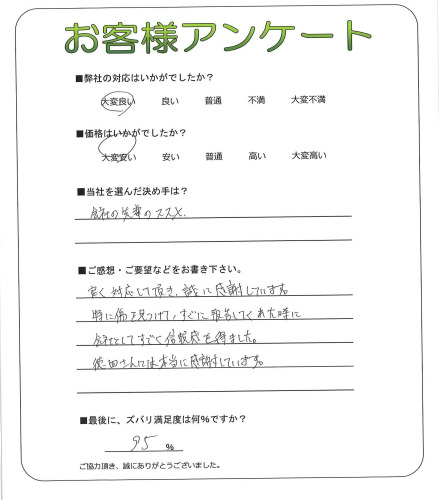 お客様アンケート
■弊社の対応はいかがでしたか？
大変良い 良い 普通 不満 大変不満
■価格はいかがでしたか？
大変安い 安い 普通 高い 大変高い
■当社を選んだ決め手は？
会社の先輩のススメ.
■ご感想・ご要望などをお書き下さい。
良く対応して頂き、誠に感謝しています。
特に傷を見つけて、すぐに報告してくれた時に
会社としてすごく信頼感を得ました。
徳田さんには本当に感謝しています。
■最後に、ズバリ満足度は何%ですか？
95 %
ご協力頂き、誠にありがとうございました。